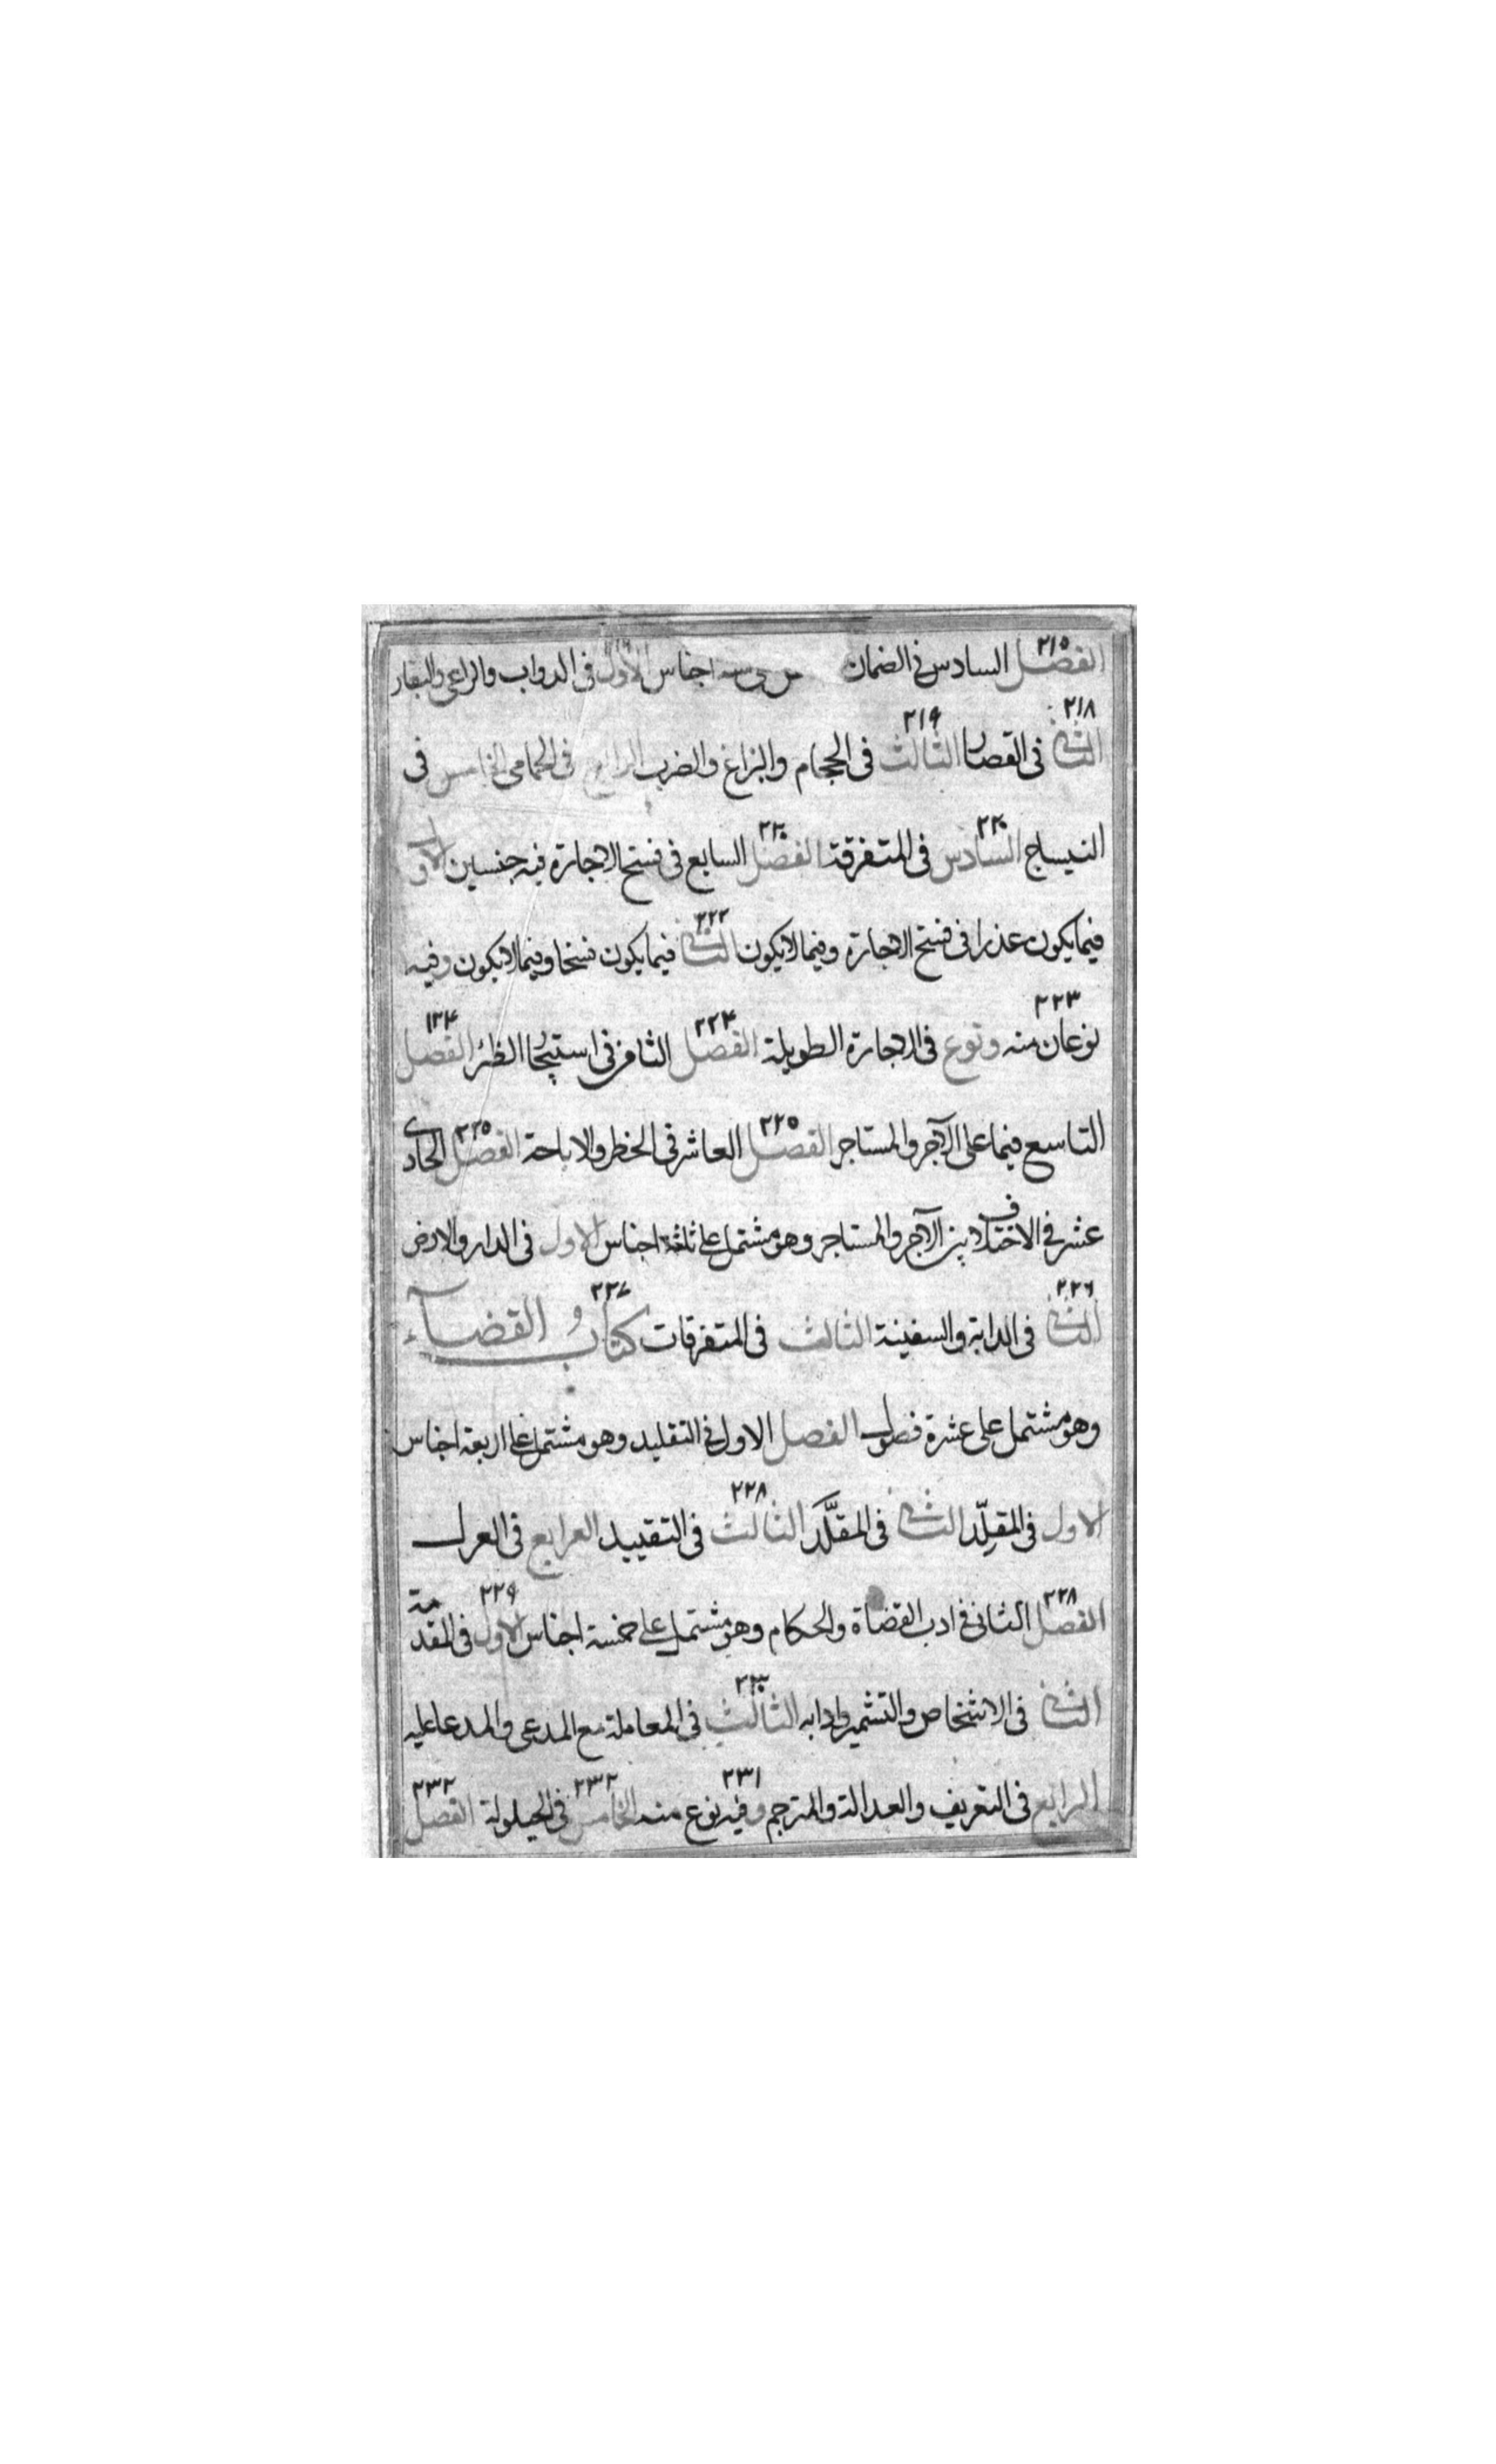 ٢١٥
الفصل السادس فى الضمان اجناس الاول فى الدواب والراعى والبقار
٢١٨ ٢١٩
الثانى فى القصار الثالث فى الحجام والبزاغ والضرب الرابع فى الحمامى الخامس فى
٢٢٠ ٢٢٠
النساج السادس فى المتفرقة الفصل السابع فى فسخ الاجارة فيه جنسين الاول
٢٢٢
فيما يكون عذرا فى فسخ الاجارة وفيما لا يكون الثانى فيما يكون فسخا وفيما لا يكون وفيه
٢٢٣ ٢٢٣ ١٢٤
نوعان منه ونوع فى الاجارة الطويلة الفصل الثامن فى استيجار الظئر الفصل
٢٢٥ ٢٢٥
التاسع فيما على الآجر والمستاجر الفصل العاشر فى الخطر والاباحة الفصل الحادى
عشر فى الاختلاف بين الآجر والمستاجر وهو مشتمل على ثلثة اجناس الاول فى الدار والارض
٢٢٦ ٢٢٧
الثانى فى الدابة والسفينة الثالث فى المتفرقات كتاب القضآء
وهو مشتمل على عشرة فصول الفصل الاول فى التقليد وهو مشتمل على اربعة اجناس
٢٢٨
الاول فى المقلِّد الثانى فى المقلَّد الثالث فى التقييد الرابع فى العزل
٢٢٨ ٢٢٩
الفصل الثانى فى ادب القضاة والحكام وهو مشتمل على خمسة اجناس الاول فى المقدمة
٢٣٠
الثانى فى الاشخاص والتشمير وادابه الثالث فى المعاملة مع المدعى والمدعا عليه
٢٣١ ٢٣٢ ٢٣٢
الرابع فى التعريف والعدالة والمترجم وفيه نوع منه الخامس فى الحيلولة الفصل